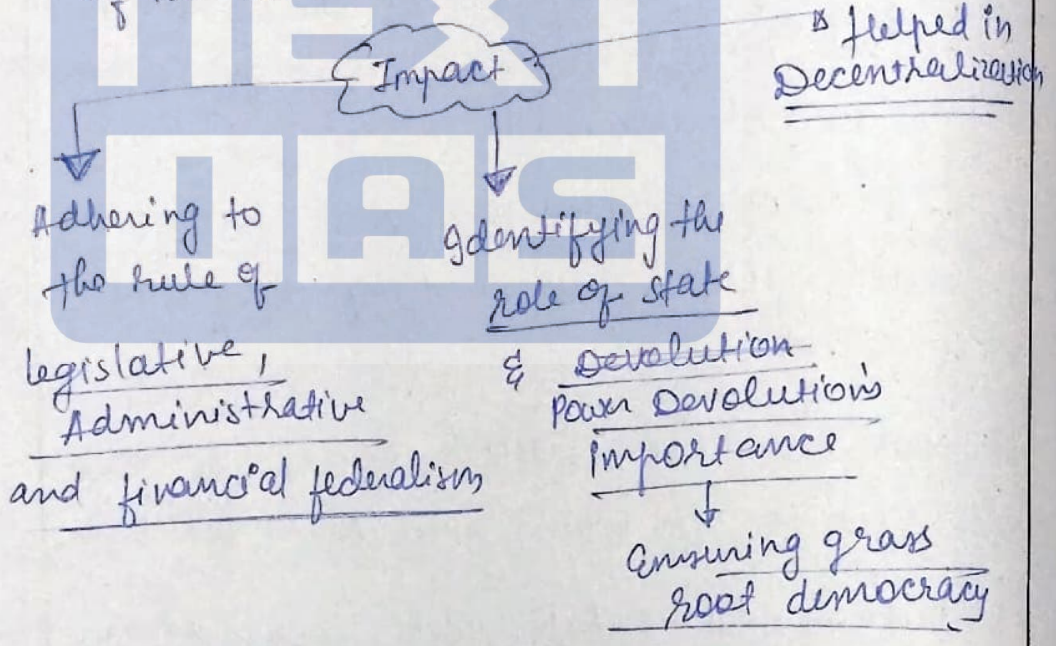 Impact
Helped in
Decentralization
Adhering to
the rule of
legislative,
Administrative
and financial federalism
Identifying the
role of state
& Devolution
Power Devolution's
importance
Ensuring grass
root democracy
NEXT
IAS